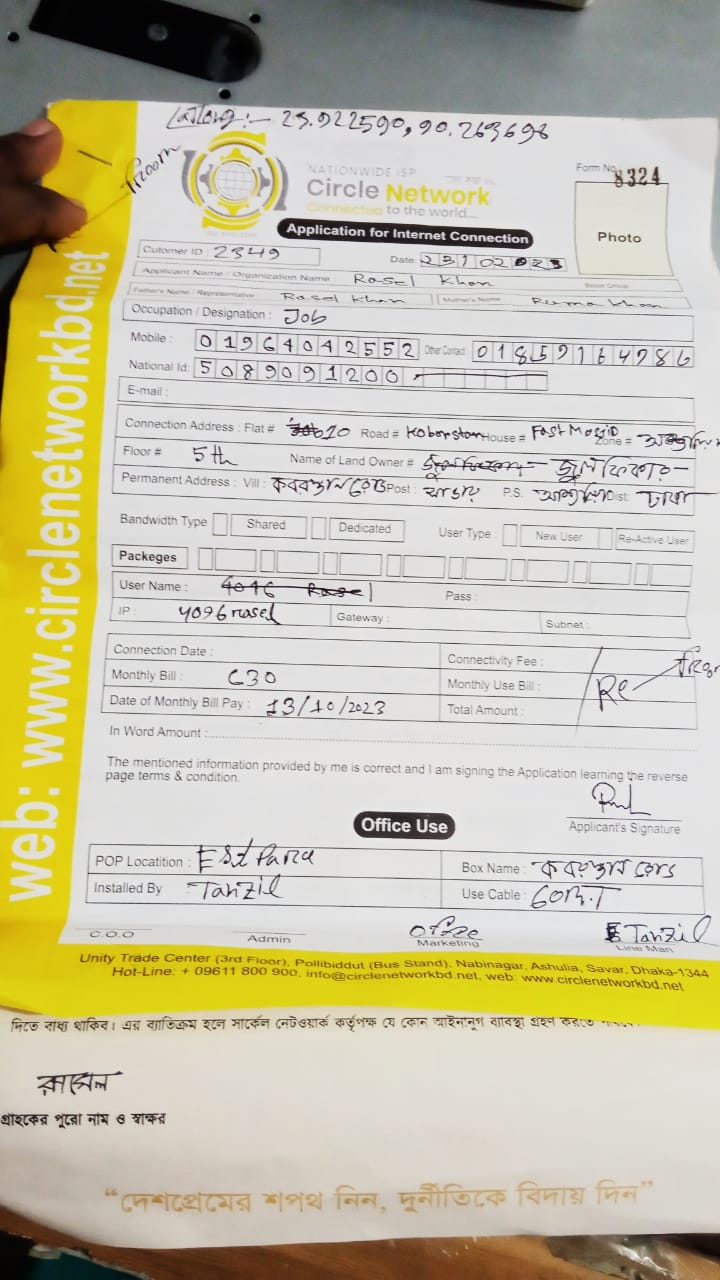 Latlong:- 23.922590, 90.263698
NATIONWIDE ISP
Circle Network
Connected to the world....
Form No. 8324
Photo
Application for Internet Connection
Cutomer ID : 2349
Date
Applicant Name / Organization Name Rasel Khan
Father's Name / Representative Rasel Khan Mother's Name Ruma Khan
Occupation / Designation : Job
Mobile : 01964042552 Other Contact 01859164986
National Id: 5089091200
E-mail :
Connection Address : Flat # 10 Road # Koborstan House # East Mosjid Zone #
Floor # 5th Name of Land Owner #
Permanent Address : Vill : কবরস্থান রোড Post : P.S. Dist: ঢাকা
Bandwidth Type Shared Dedicated User Type : New User Re-Active User
Packeges
User Name : Pass :
IP : 4096rasel Gateway : Subnet :
Connection Date : Connectivity Fee :
Monthly Bill : 630 Monthly Use Bill : Re
Date of Monthly Bill Pay : 13/10/2023 Total Amount :
In Word Amount :
The mentioned information provided by me is correct and I am signing the Application learning the reverse
page terms & condition.
Applicant's Signature
Office Use
POP Locatition : Est Para Box Name :
Installed By Tanzil Use Cable : 60m.T
Office Tanzil
C.O.O Admin Marketing Line Man
Unity Trade Center (3rd Floor), Pollibiddut (Bus Stand), Nabinagar, Ashulia, Savar, Dhaka-1344
Hot-Line: + 09611 800 900, info@circlenetworkbd.net, web: www.circlenetworkbd.net
web: www.circlenetworkbd.net
দিতে বাধ্য থাকিব। এর ব্যতিক্রম হলে সার্কেল নেটওয়ার্ক কর্তৃপক্ষ যে কোন আইনানুগ ব্যবস্থা গ্রহণ করতে
রাসেল
গ্রাহকের পুরো নাম ও স্বাক্ষর
“দেশপ্রেমের শপথ নিন, দুর্নীতিকে বিদায় দিন”